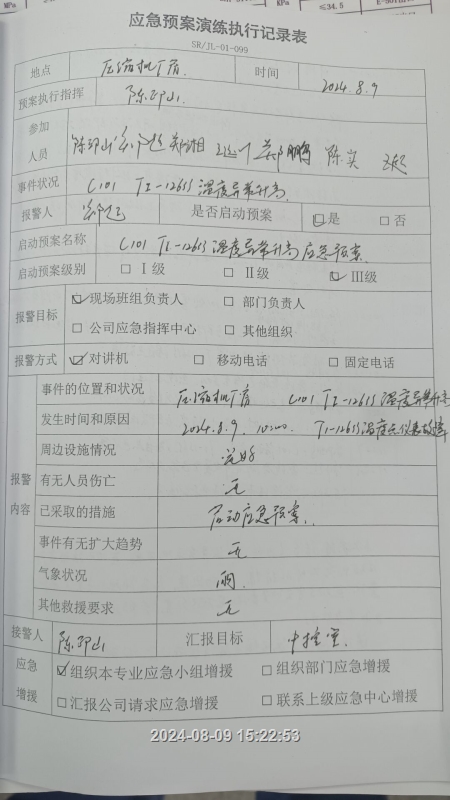 KPa ≤34.5
MPa
应急预案演练执行记录表
SR/JL-01-099
地点 压缩机厂房 时间 2024.8.9
预案执行指挥
参加人员 陈实
事件状况 C101 TI-1261S 温度异常升高
报警人 是否启动预案 ☑是 □否
启动预案名称 C101 TI-1261S 温度异常升高应急预案
启动预案级别 □Ⅰ级 □Ⅱ级 ☑Ⅲ级
报警目标 ☑现场班组负责人 □部门负责人
□公司应急指挥中心 □其他组织
报警方式 ☑对讲机 □移动电话 □固定电话
报警内容 事件的位置和状况 压缩机厂房 C101 TI-1261S 温度异常升高
发生时间和原因 2024.8.9. 10:00 TI-1261S温度点仪表故障
周边设施情况 完好
有无人员伤亡 无
已采取的措施 启动应急预案
事件有无扩大趋势 无
气象状况 雨
其他救援要求 无
接警人 汇报目标 中控室
应急增援 ☑组织本专业应急小组增援 □组织部门应急增援
□汇报公司请求应急增援 □联系上级应急中心增援
2024-08-09 15:22:53